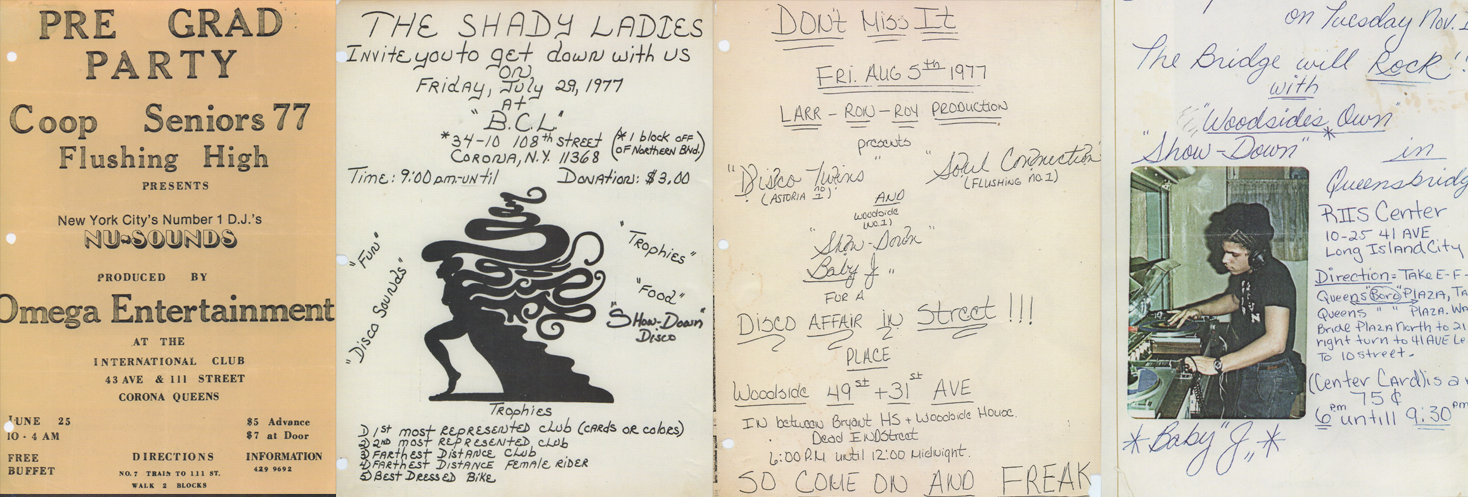 PRE GRAD
PARTY
Coop Seniors 77
Flushing High
PRESENTS
New York City's Number 1 D.J.'s
NU-SOUNDS
PRODUCED BY
Omega Entertainment
AT THE
INTERNATIONAL CLUB
43 AVE & 111 STREET
CORONA QUEENS
JUNE 25
10 - 4 AM
$5 Advance
$7 at Door
FREE
BUFFET
DIRECTIONS
NO. 7 TRAIN TO 111 ST.
WALK 2 BLOCKS
INFORMATION
429 9692
THE SHADY LADIES
INVITE you to get down with US
ON
FRIDAY, July 29, 1977
AT
"B.C.L"
*34-10 108th STREET (*1 block off
OF NORTHERN Blvd.)
CORONA, N.Y. 11368
TIME: 9:00 pm-UNTIL DONATION: $3.00
"Fun"
"Disco Sounds"
"Trophies"
"Food"
"SHOW-DOWN"
DISCO
Trophies
1) 1ST MOST REPRESENTED CLUB (CARDS OR COLORS)
2) 2ND MOST REPRESENTED CLUB
3) FARTHEST DISTANCE CLUB
4) FARTHEST DISTANCE FEMALE RIDER
5) BEST DRESSED BIKE
DON't Miss It
FRI. AUG 5th 1977
LARR - RON - ROY PRODUCTION
presents
"Disco Twins" "Soul Connection"
(ASTORIA NO 1) (FLUSHING NO. 1)
AND
(WOODSIDE
NO. 1)
"Show-Down"
Baby J"
FOR A
DISCO AFFAIR IN Street !!!
PLACE
Woodside 49st + 31st AVE
IN between Bryant HS + Woodside House.
Dead END Street
6:00 P.M until 12:00 Midnight.
SO COME ON AND FREAK
on Tuesday Nov. 1
The Bridge will Rock!!
with
"Woodsides Own"
"Show-Down" * in
Queensbridg
RIIS Center
10-25 41 AVE
Long Island City
Direction = Take E-F-
Queens "Boro" Plaza, Ta
Queens " " Plaza. Wa
Bride Plaza North to 21
right turn to 41 AVE Le
To 10 street.
(Center Card) is a
75¢
6pm untill 9:30pm
*"Baby" J,,*